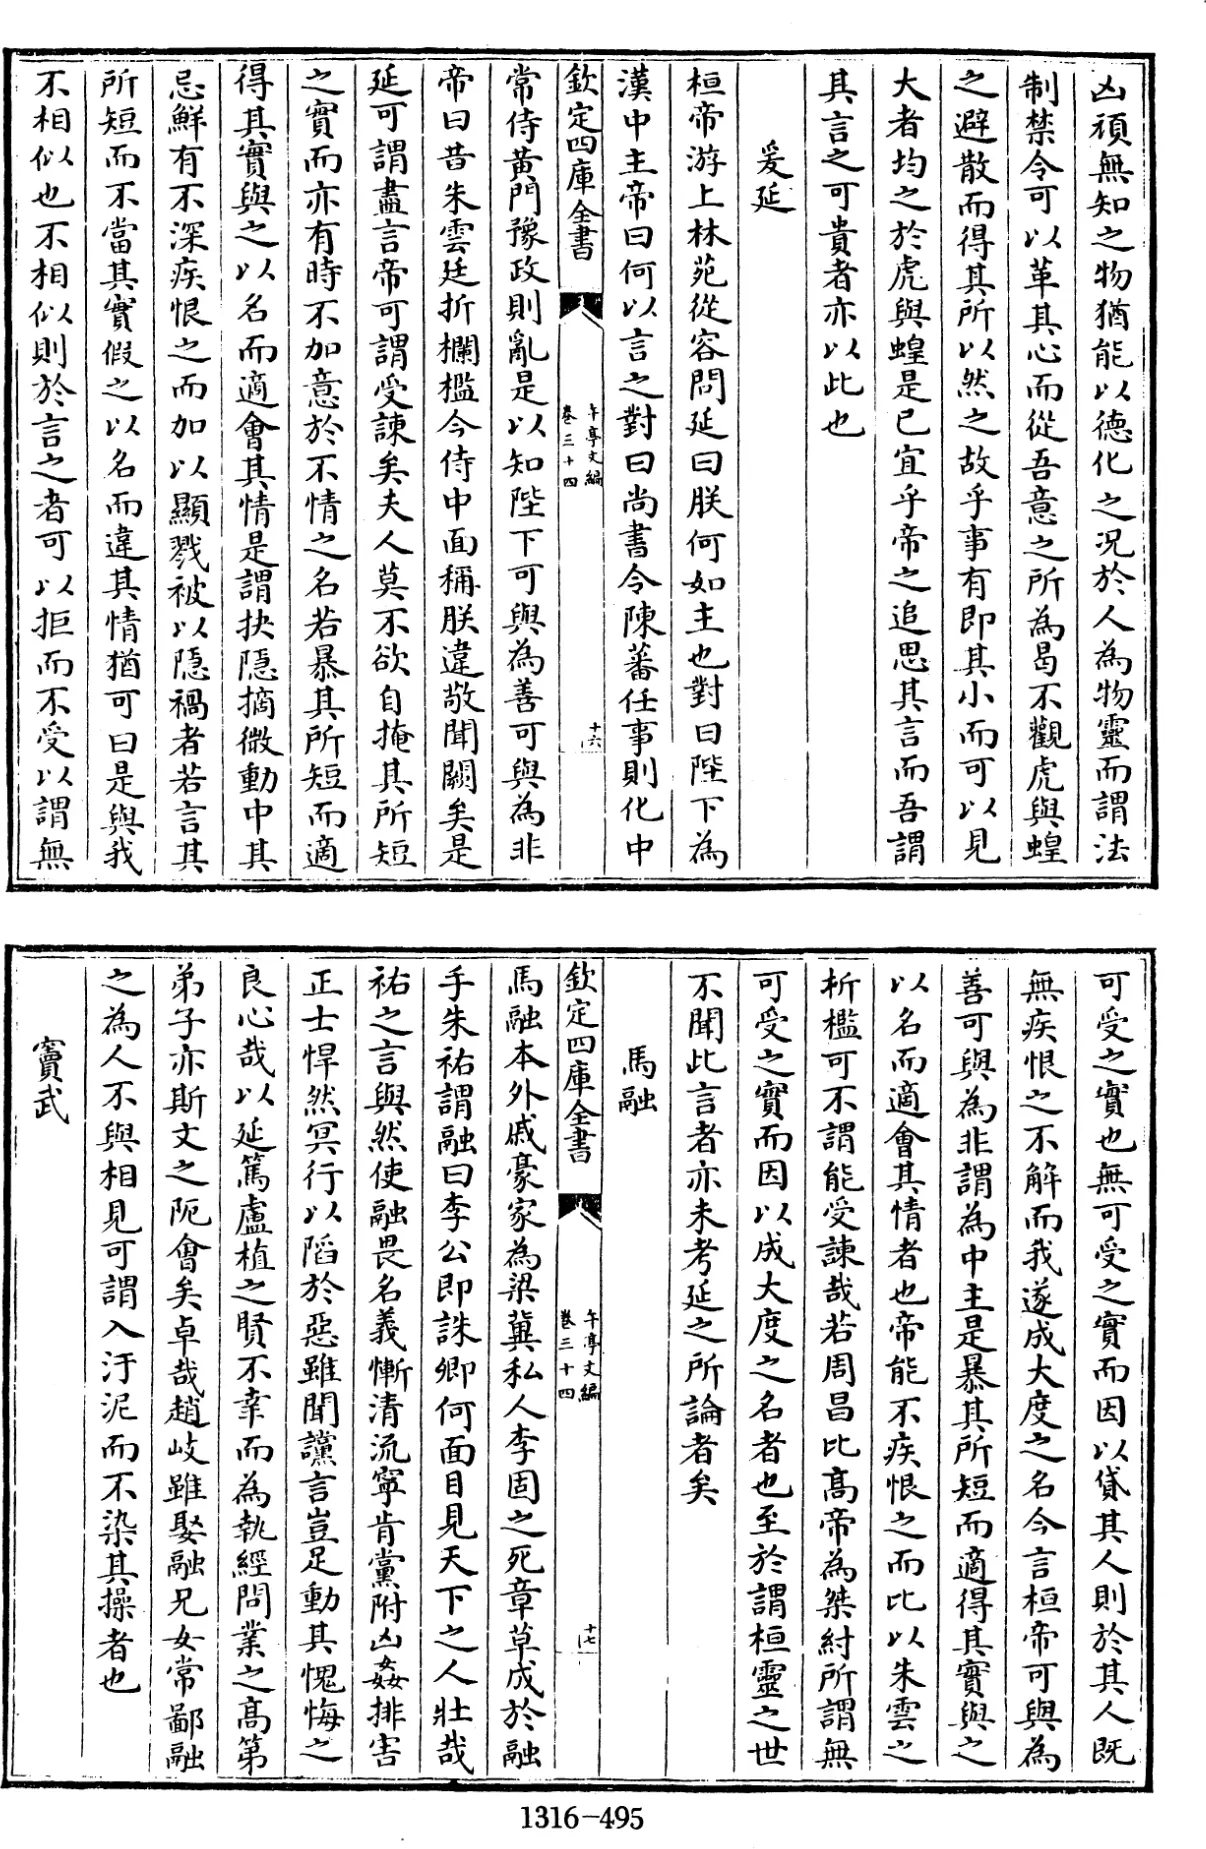 凶頑無知之物猶能以德化之況於人為物靈而謂法
制禁令可以革其心而從吾意之所為曷不觀虎與蝗
之避散而得其所以然之故乎事有即其小而可以見
大者均之於虎與蝗是已宜乎帝之追思其言而吾謂
其言之可貴者亦以此也
爰延
桓帝游上林苑從容問延曰朕何如主也對曰陛下為
漢中主帝曰何以言之對曰尚書令陳蕃任事則化中
欽定四庫全書
午亭文編
卷三十四
十六
常侍黃門豫政則亂是以知陛下可與為善可與為非
帝曰昔朱雲廷折欄檻今侍中面稱朕違敬聞闕矣是
延可謂盡言帝可謂受諫矣夫人莫不欲自掩其所短
之實而亦有時不加意於不情之名若暴其所短而適
得其實與之以名而適會其情是謂抉隱摘微動中其
忌鮮有不深疾恨之而加以顯戮被以隱禍者若言其
所短而不當其實假之以名而違其情猶可曰是與我
不相似也不相似則於言之者可以拒而不受以謂無
可受之實也無可受之實而因以貸其人則於其人既
無疾恨之不解而我遂成大度之名今言桓帝可與為
善可與為非謂為中主是暴其所短而適得其實與之
以名而適會其情者也帝能不疾恨之而比以朱雲之
折檻可不謂能受諫哉若周昌比高帝為桀紂所謂無
可受之實而因以成大度之名者也至於謂桓靈之世
不聞此言者亦未考延之所論者矣
馬融
欽定四庫全書
午亭文編
卷三十四
十七
馬融本外戚豪家為梁冀私人李固之死章草成於融
手朱祐謂融曰李公即誅卿何面目見天下之人壯哉
祐之言與然使融畏名義慚清流寧肯黨附凶姦排害
正士悍然冥行以陷於惡雖聞讜言豈足動其愧悔之
良心哉以延篤盧植之賢不幸而為執經問業之高第
弟子亦斯文之阨會矣卓哉趙岐雖娶融兄女常鄙融
之為人不與相見可謂入汙泥而不染其操者也
竇武
1316-495